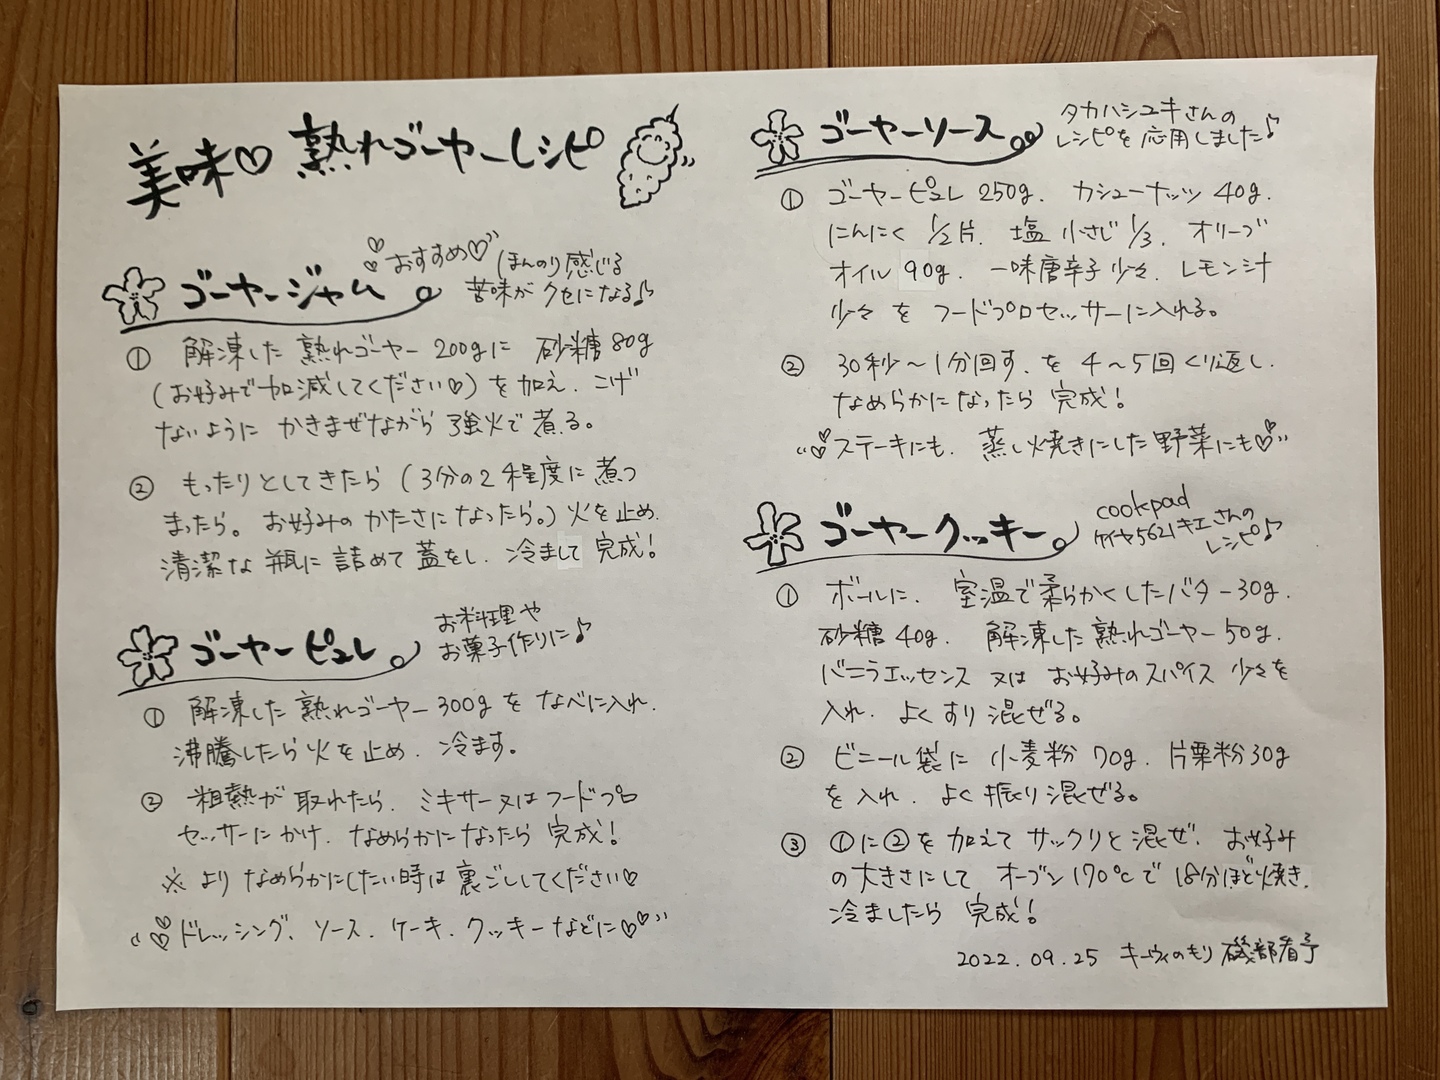 美味♡ 熟れゴーヤーレシピ
おすすめ♡
ゴーヤージャム
(ほんのり感じる
苦味がクセになる♪
① 解凍した 熟れゴーヤー 200gに 砂糖 80g
(お好みで加減してください♡)を加え、こげ
ないように かきまぜながら 強火で 煮る。
② もったりとしてきたら (3分の2程度に煮つ
まったら。お好みの かたさに なったら。) 火を止め、
清潔な 瓶に 詰めて 蓋をし、冷まして 完成!
ゴーヤーピュレ
お料理や
お菓子作りに♪
① 解凍した 熟れゴーヤー 300gを なべに入れ、
沸騰したら 火を止め、冷ます。
② 粗熱が 取れたら、ミキサー又はフードプロ
セッサーにかけ、なめらかになったら 完成!
※ より なめらかにしたい時は 裏ごししてください♡
“♡ドレッシング、ソース、ケーキ、クッキーなどに♡♡”
ゴーヤーソース
タカハシユキさんの
レシピを 応用しました♪
① ゴーヤーピュレ 250g、カシューナッツ 40g、
にんにく 1/2片、塩 小さじ 1/3、オリーブ
オイル 90g、一味唐辛子 少々、レモン汁
少々 を フードプロセッサーに入れる。
② 30秒〜1分回す、を 4〜5回くり返し、
なめらかになったら 完成!
“♡ステーキにも、蒸し焼きにした野菜にも♡”
ゴーヤークッキー
cookpad
ケイヤ5621キエさんの
レシピ♪
① ボールに、室温で柔らかくしたバター30g、
砂糖 40g、解凍した 熟れゴーヤー 50g、
バニラエッセンス 又は お好みのスパイス 少々を
入れ、よく すり混ぜる。
② ビニール袋に 小麦粉 70g、片栗粉 30g
を 入れ、よく 振り混ぜる。
③ ①に②を 加えて サックリと 混ぜ、お好み
の大きさにして オーブン170℃で 18分ほど焼き、
冷ましたら 完成!
2022.09.25 キーウィのもり 磯部着予